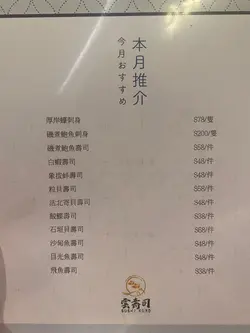 本月推介
今月おすすめ
厚岸蠔刺身 $78/隻
磯煮鮑魚刺身 $200/隻
磯煮鮑魚壽司 $58/件
白蝦壽司 $48/件
象拔蚌壽司 $48/件
粒貝壽司 $48/件
活北寄貝壽司 $48/件
鯣鰺壽司 $38/件
石垣貝壽司 $68/件
沙甸魚壽司 $48/件
目光魚壽司 $48/件
飛魚壽司 $38/件
雲壽司